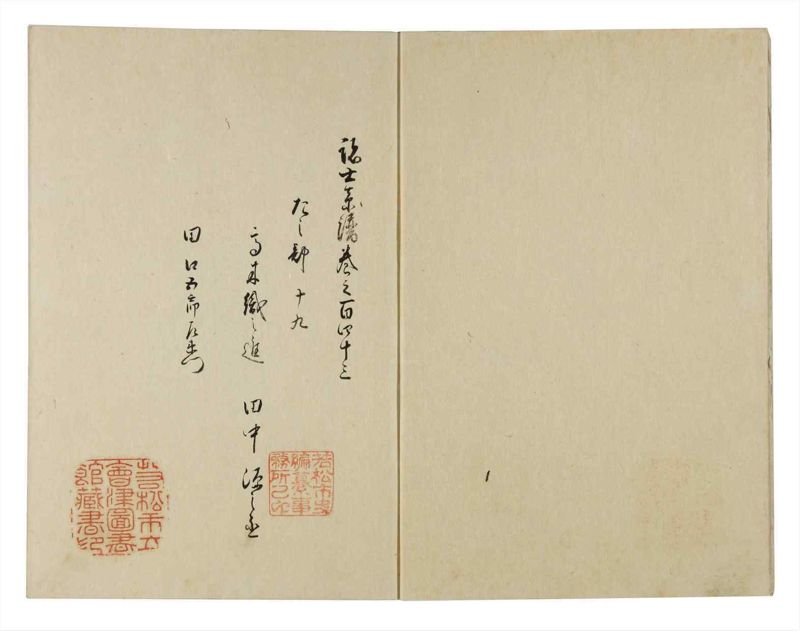 諸士系譜巻之百四十三
た之部 十九
高木織之進 田中源之丞
田口五郎左衛門
若松市史
編纂事
務所之印
若松市立
會津圖書
館藏書印